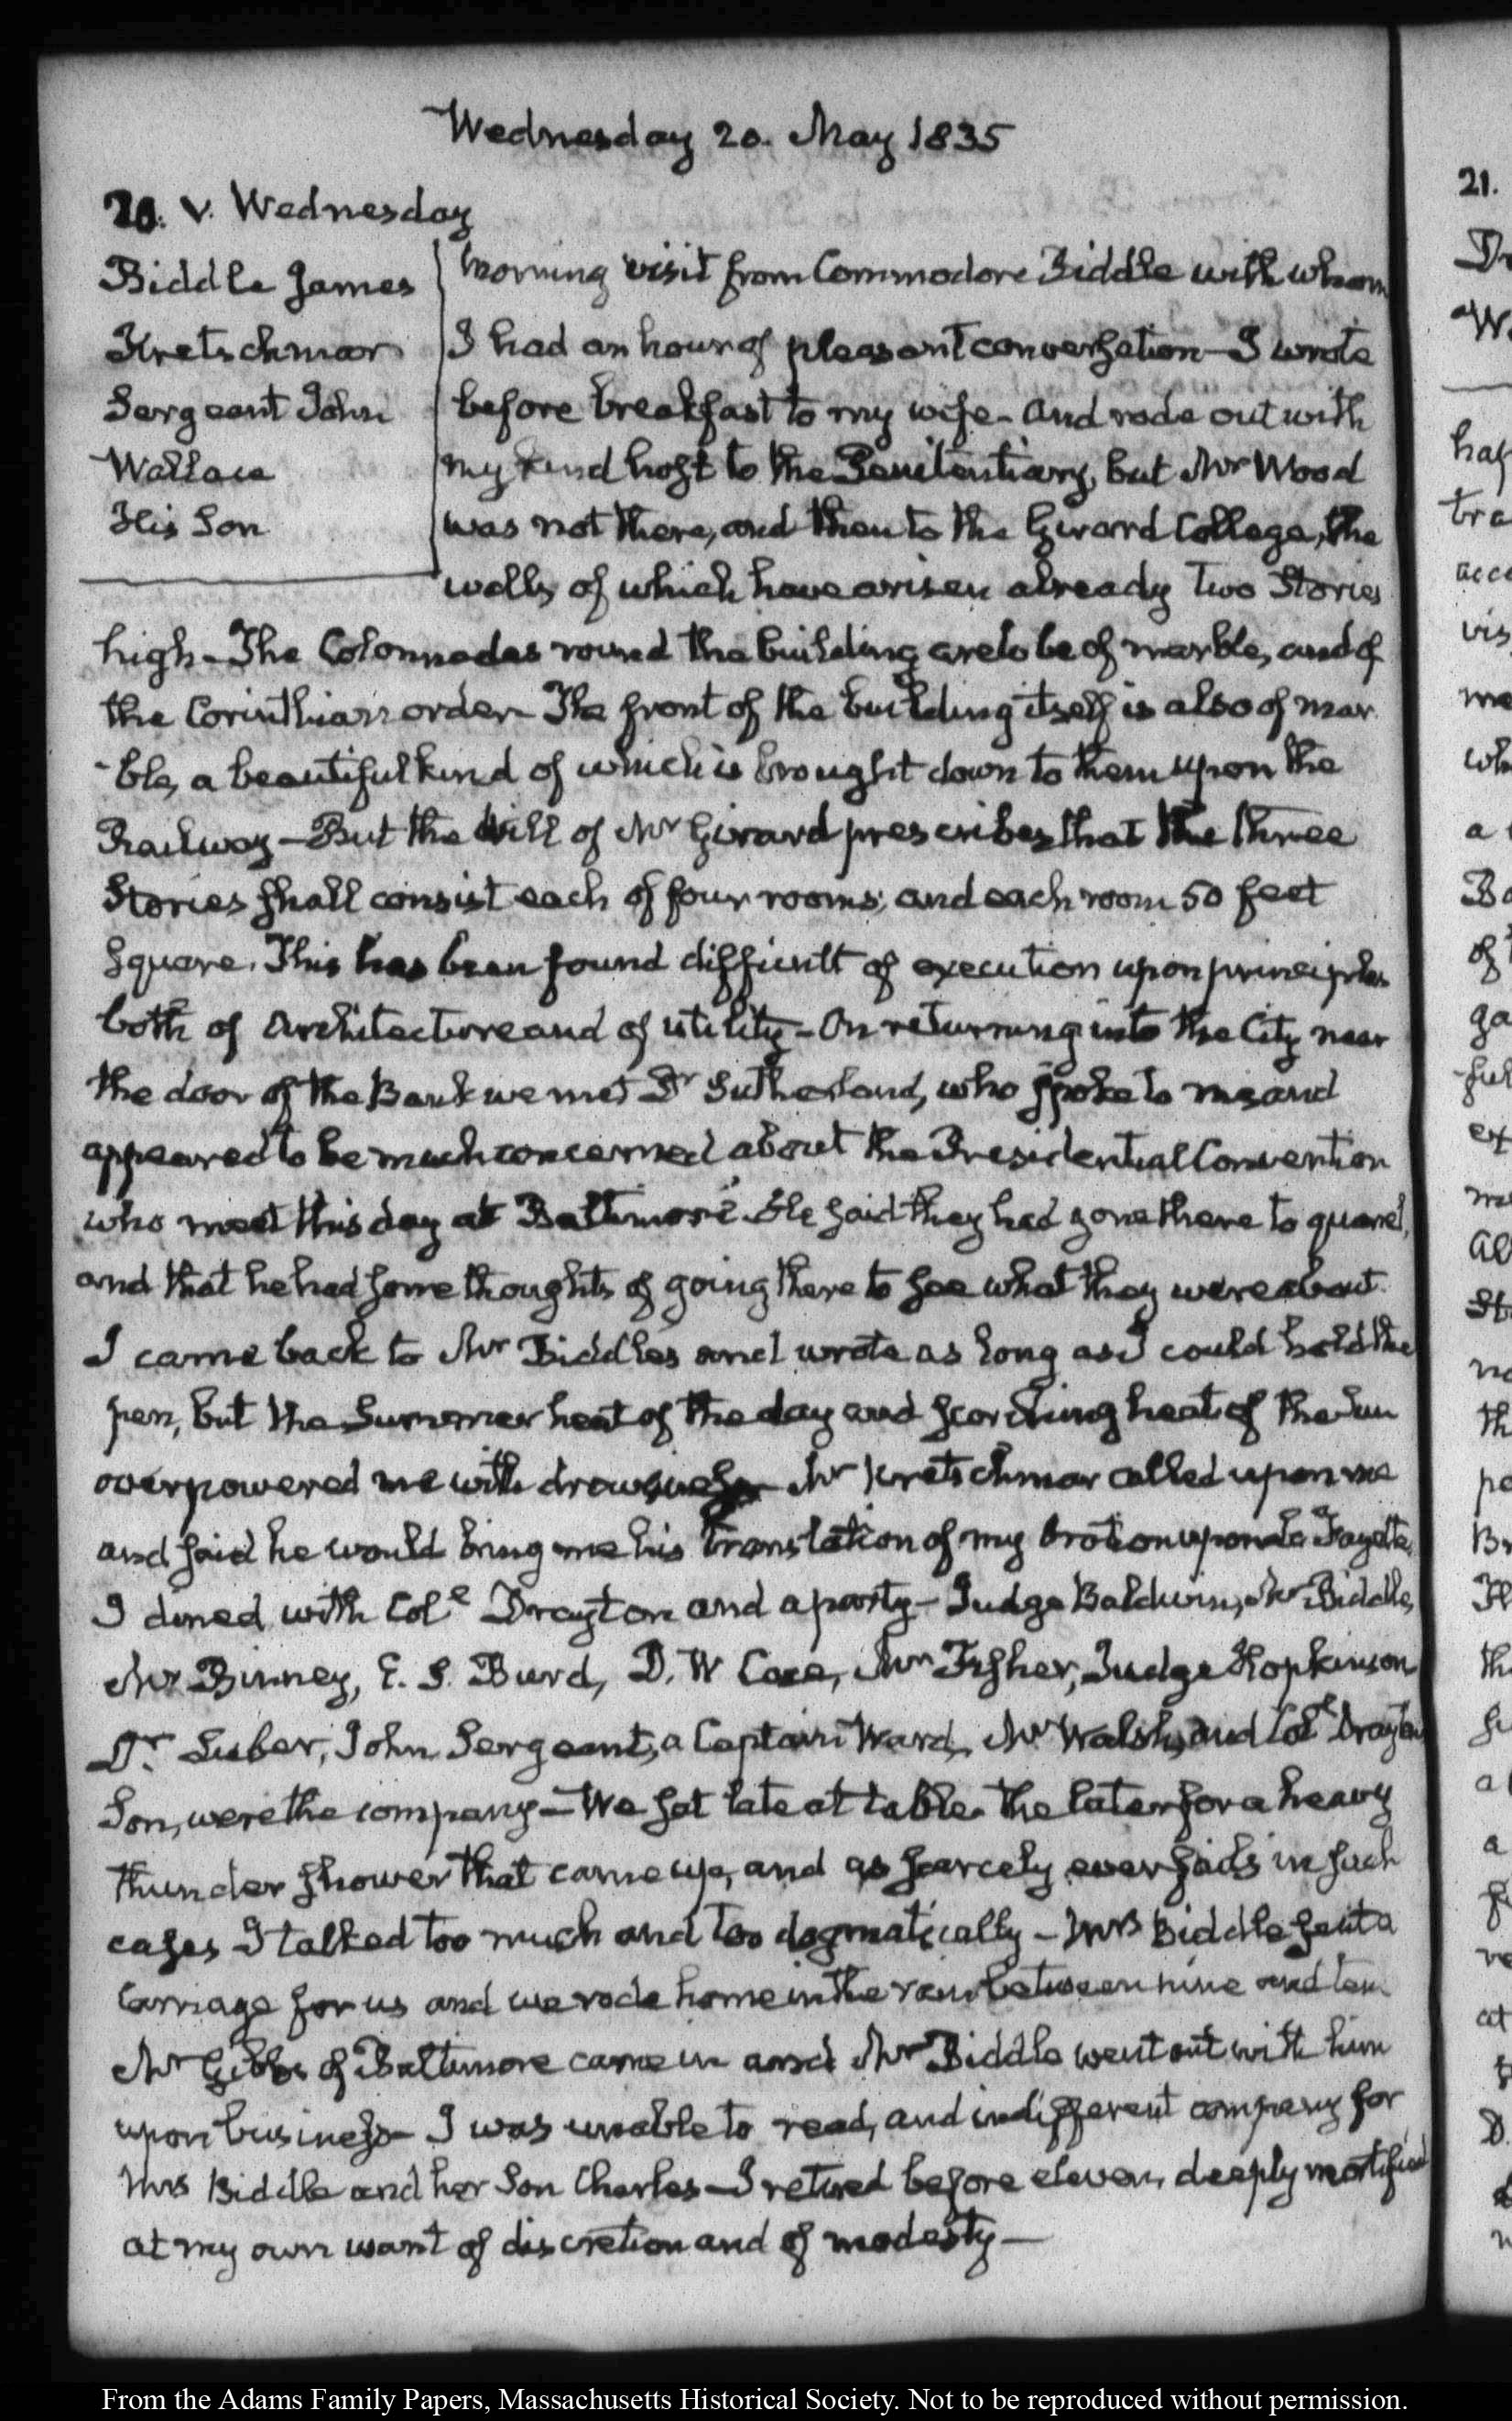 Wednesday 20. May 1835
20. V. Wednesday
Biddle James
Kretschmar
Sergeant John
Wallace
His Son
Morning visit from Commodore Biddle with whom
I had an hour of pleasant conversation — I wrote
before breakfast to my wife — and rode out with
my kind host to the Penitentiary, but Mr Wood
was not there, and then to the Girard College, the
walls of which have arisen already two Stories
high — The Colonnades round the building are to be of marble, and of
the Corinthian order — The front of the building itself is also of mar
-ble, a beautiful kind of which is brought down to them upon the
Railway — But the Will of Mr Girard prescribes that the three
Stories shall consist each of four rooms, and each room 50 feet
Square. This has been found difficult of execution upon principles
both of Architecture and of utility — On returning into the City near
the door of the Bank we met Dr Sutherland, who spoke to me and
appeared to be much concerned about the Presidential Convention
who meet this day at Baltimore. He said they had gone there to quarrel,
and that he had some thoughts of going there to see what they were about.
I came back to Mr Biddle's and wrote as long as I could hold the
pen, but the Summer heat of the day and scorching heat of the Sun
overpowered me with drowsiness — Mr Kretschmar called upon me
and said he would bring me his translation of my Oration upon La Fayette.
I dined with Col.l Drayton and a party — Judge Baldwin, Mr Biddle,
Mr Binney, E. S. Burd, D. W Coxe, Mr Fisher, Judge Hopkinson
Dr. Lieber, John Sergeant, a Captain Ward, Mr Walsh, and Col.l Drayton
Son, were the company — We sat late at table. The later for a heavy
thunder shower that came up, and as scarcely ever fails in such
cases I talked too much and too dogmatically — Mrs Biddle sent a
Carriage for us and we rode home in the rain between nine and ten
Mr Gibbs of Baltimore came in and Mr Biddle went out with him
upon business — I was unable to read, and indifferent company for
Mrs Biddle and her Son Charles — I retired before eleven, deeply mortified
at my own want of discretion and of modesty —
21.
From the Adams Family Papers, Massachusetts Historical Society. Not to be reproduced without permission.